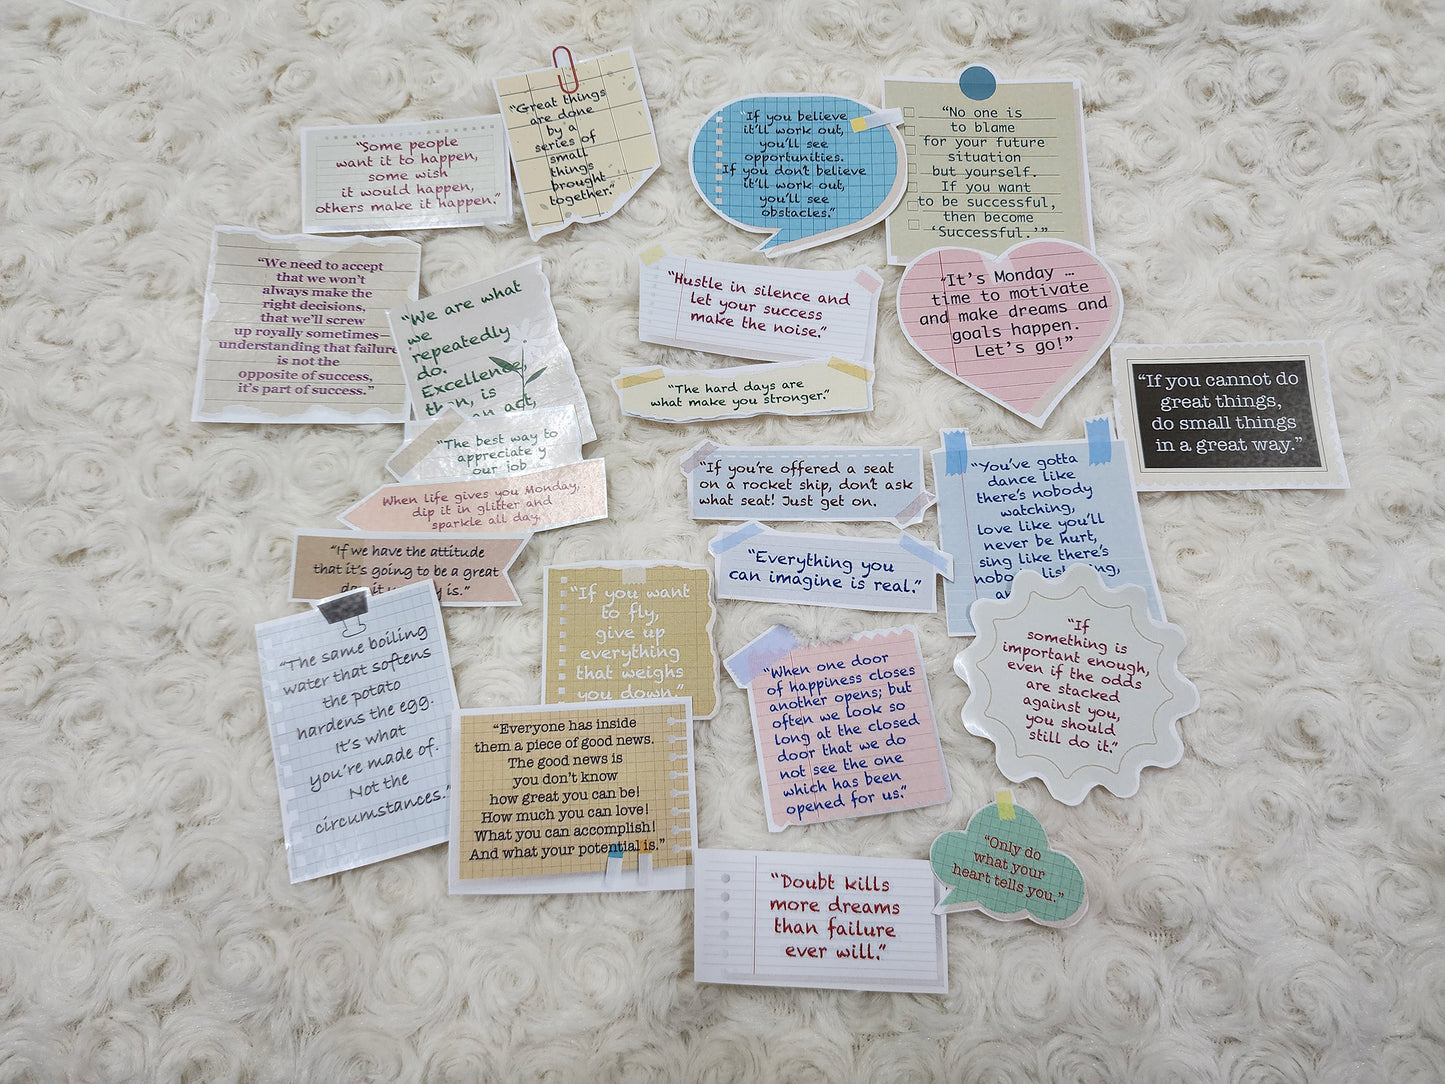 “Some people
want it to happen,
some wish
it would happen,
others make it happen.”
“Great things
are done
by a
series of
small
things
brought
together.”
“If you believe
it’ll work out,
you’ll see
opportunities.
If you don’t believe
it’ll work out,
you’ll see
obstacles.”
“No one is
to blame
for your future
situation
but yourself.
If you want
to be successful,
then become
‘Successful.’”
“We need to accept
that we won’t
always make the
right decisions,
that we’ll screw
up royally sometimes—
understanding that failure
is not the
opposite of success,
it’s part of success.”
“We are what
we
repeatedly
do.
Excellence,
then, is
an act,
“Hustle in silence and
let your success
make the noise.”
“It’s Monday …
time to motivate
and make dreams and
goals happen.
Let’s go!”
“If you cannot do
great things,
do small things
in a great way.”
“The hard days are
what make you stronger.”
“The best way to
appreciate y
our job
“If you’re offered a seat
on a rocket ship, don’t ask
what seat! Just get on.
“You’ve gotta
dance like
there’s nobody
watching,
love like you’ll
never be hurt,
sing like there’s
nobody listening,
When life gives you Monday,
dip it in glitter and
sparkle all day.
“If we have the attitude
that it’s going to be a great
is.”
“Everything you
can imagine is real.”
“The same boiling
water that softens
the potato
hardens the egg.
It’s what
you’re made of.
Not the
circumstances.”
“If you want
to fly,
give up
everything
that weighs
you down.”
“When one door
of happiness closes
another opens; but
often we look so
long at the closed
door that we do
not see the one
which has been
opened for us.”
“If
something is
important enough,
even if the odds
are stacked
against you,
you should
still do it.”
“Everyone has inside
them a piece of good news.
The good news is
you don’t know
how great you can be!
How much you can love!
What you can accomplish!
And what your potential is.”
“Only do
what your
heart tells you.”
“Doubt kills
more dreams
than failure
ever will.”